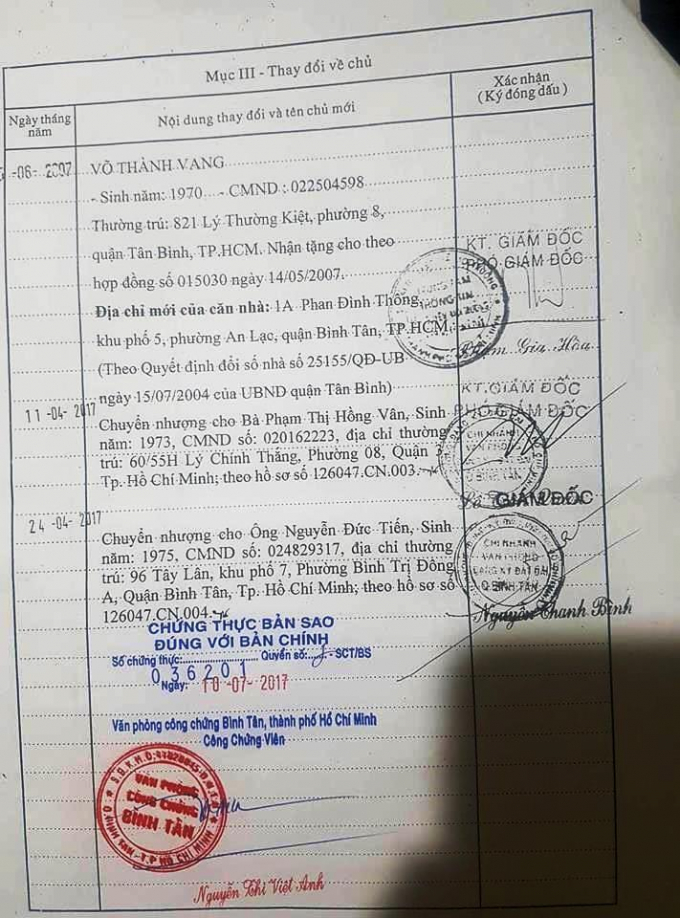 Mục III - Thay đổi về chủ
Ngày tháng năm
Nội dung thay đổi và tên chủ mới
Xác nhận
(Ký đóng dấu)
-06- 2007
VÕ THÀNH VANG
- Sinh năm: 1970 - CMND : 022504598
Thường trú: 821 Lý Thường Kiệt, phường 8,
quận Tân Bình, TP.HCM. Nhận tặng cho theo
hợp đồng số 015030 ngày 14/05/2007.
KT. GIÁM ĐỐC
PHÓ GIÁM ĐỐC
Địa chỉ mới của căn nhà: 1A Phan Đình Thông,
khu phố 5, phường An Lạc, quận Bình Tân, TP.HCM
(Theo Quyết định đổi số nhà số 25155/QĐ-UB
ngày 15/07/2004 của UBND quận Tân Bình)
Gia Hòa
11-04- 2017
Chuyển nhượng cho Bà Phạm Thị Hồng Vân, Sinh
năm: 1973, CMND số: 020162223, địa chỉ thường
trú: 60/55H Lý Chính Thắng, Phường 08, Quận
Tp. Hồ Chí Minh; theo hồ sơ số 126047.CN.003.
KT.GIÁM ĐỐC
PHÓ GIÁM ĐỐC
CHI NHÁNH
VĂN PHÒNG
Q.BÌNH TÂN
24-04- 2017
Chuyển nhượng cho Ông Nguyễn Đức Tiến, Sinh
năm: 1975, CMND số: 024829317, địa chỉ thường
trú: 96 Tây Lân, khu phố 7, Phường Bình Trị Đông
A, Quận Bình Tân, Tp. Hồ Chí Minh; theo hồ sơ số
126047.CN.004.
GIÁM ĐỐC
CHI NHÁNH
VĂN PHÒNG
ĐĂNG KÝ ĐẤT ĐAI
Q.BÌNH TÂN
Nguyễn Thanh Bình
CHỨNG THỰC BẢN SAO
ĐÚNG VỚI BẢN CHÍNH
Số chứng thực: 036201 Quyển số: - SCT/BS
Ngày: 10 -07- 2017
Văn phòng công chứng Bình Tân, thành phố Hồ Chí Minh
Công Chứng Viên
VĂN PHÒNG
CÔNG CHỨNG
BÌNH TÂN
Nguyễn Thị Việt Anh